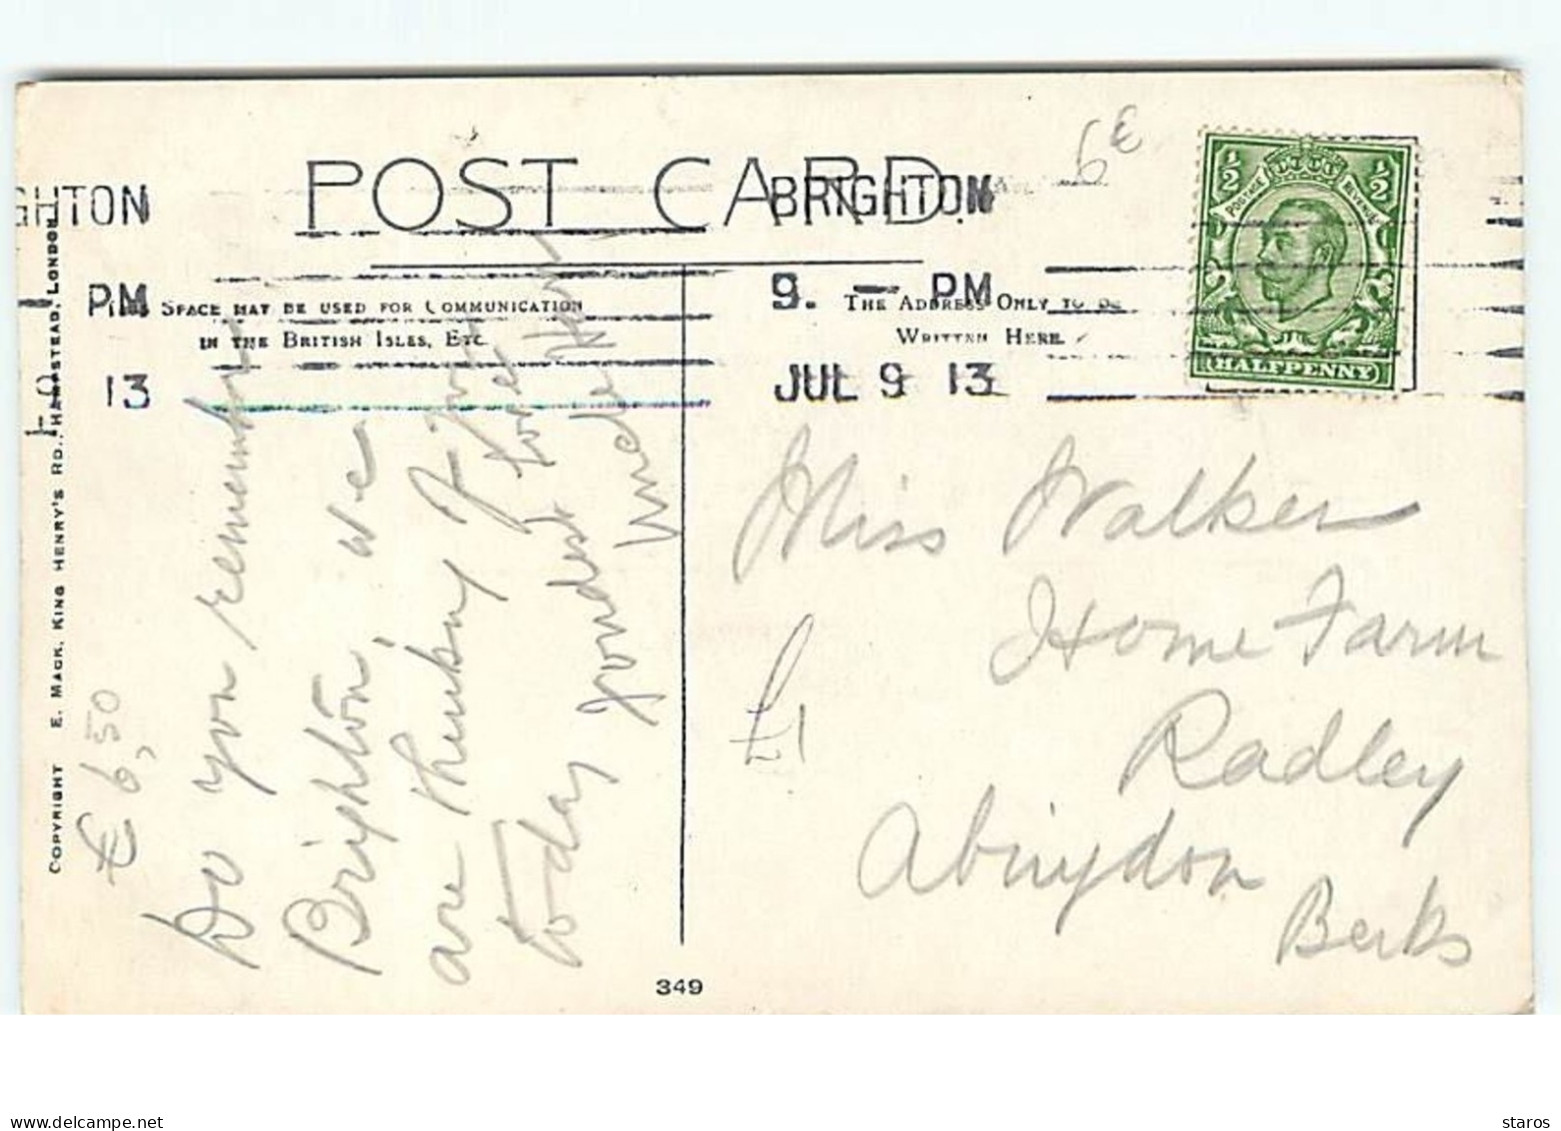 POST CARD.
BRIGHTON
9. — PM
JUL 9 13
GHTON
PM
13
SPACE MAY BE USED FOR COMMUNICATION
IN THE BRITISH ISLES, ETC.
THE ADDRESS ONLY TO BE
WRITTEN HERE.
½ ½
POSTAGE REVENUE
HALFPENNY
9€
COPYRIGHT E. MACK, KING HENRY'S RD., HAMPSTEAD, LONDON
€ 6,50
Do you remember
Brighton, we
are thinking of you
today fondest love
Uncle Harry
£1
Miss Walker
Home Farm
Radley
Abingdon
Berks
349
www.delcampe.net
staros